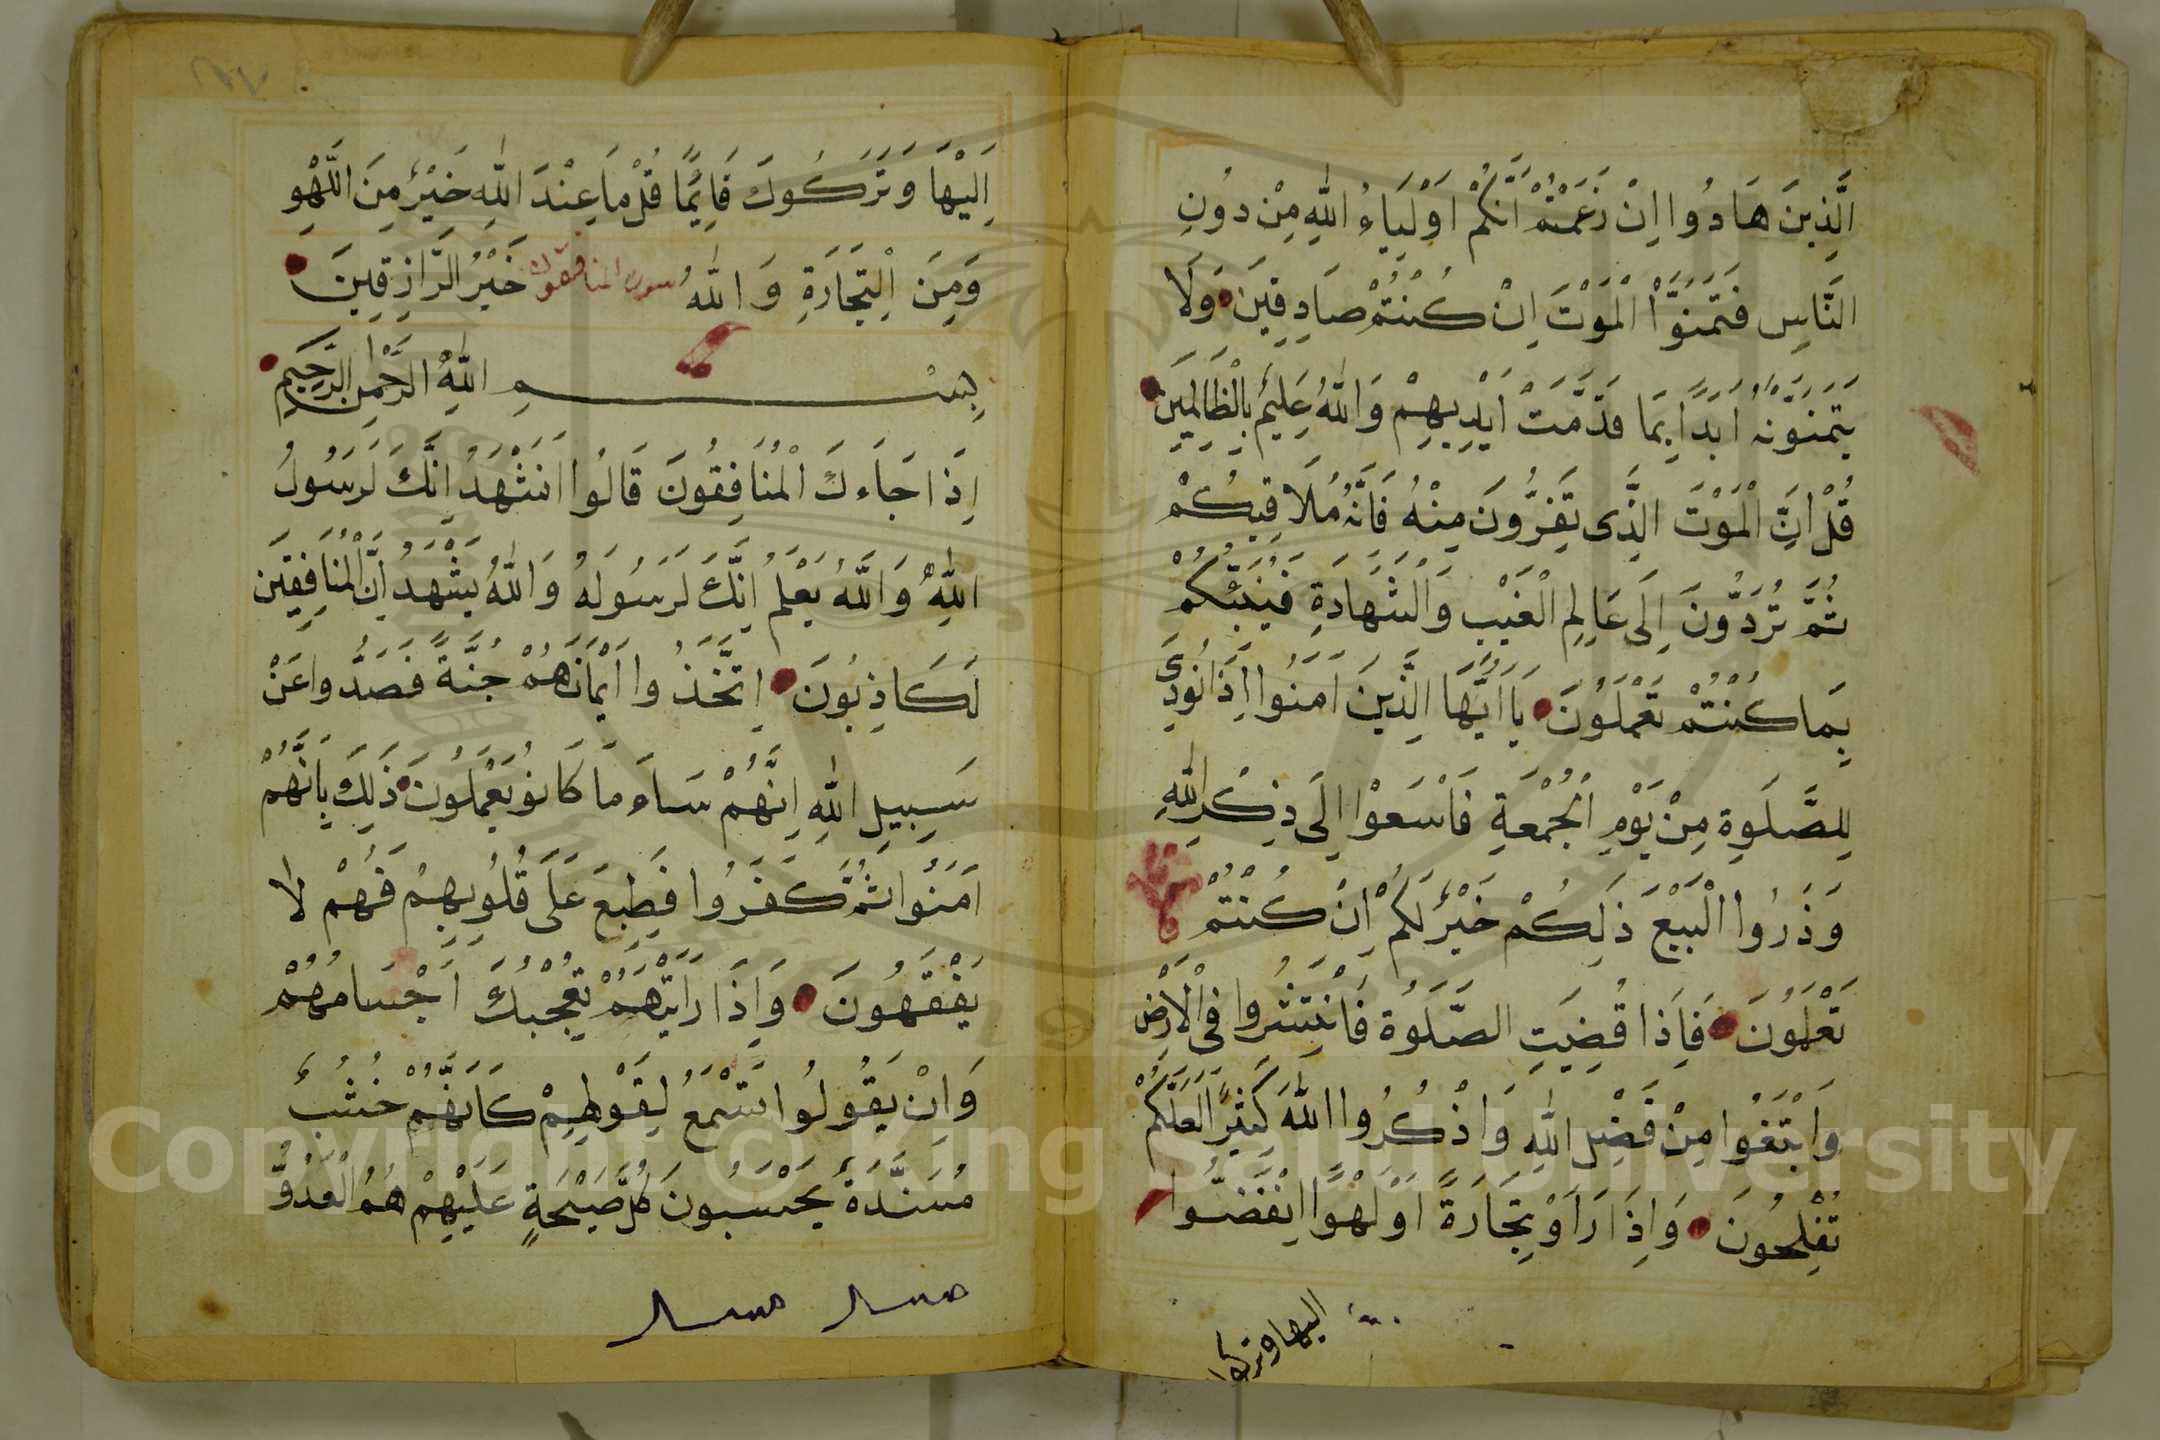 الَّذِينَ هَادُوا اِنْ زَعَمْتُمْ اَنَّكُمْ اَوْلِيَاءُ اللّٰهِ مِنْ دُونِ
النَّاسِ فَتَمَنَّوُا الْمَوْتَ اِنْ كُنْتُمْ صَادِقِينَ وَلَا
يَتَمَنَّوْنَهُ اَبَدًا بِمَا قَدَّمَتْ اَيْدِيهِمْ وَاللّٰهُ عَلِيمٌ بِالظَّالِمِينَ
قُلْ اِنَّ الْمَوْتَ الَّذِى تَفِرُّونَ مِنْهُ فَاِنَّهُ مُلَاقِيكُمْ
ثُمَّ تُرَدُّونَ اِلَى عَالِمِ الْغَيْبِ وَالشَّهَادَةِ فَيُنَبِّئُكُمْ
بِمَا كُنْتُمْ تَعْمَلُونَ يَا اَيُّهَا الَّذِينَ اٰمَنُوا اِذَا نُودِىَ
لِلصَّلَوةِ مِنْ يَوْمِ الْجُمْعَةِ فَاسْعَوْا اِلَى ذِكْرِ اللّٰهِ
وَذَرُوا الْبَيْعَ ذَلِكُمْ خَيْرٌ لَكُمْ اِنْ كُنْتُمْ
تَعْلَمُونَ فَاِذَا قُضِيَتِ الصَّلَوةُ فَانْتَشِرُوا فِى الْاَرْضِ
وَابْتَغُوا مِنْ فَضْلِ اللّٰهِ وَاذْكُرُوا اللّٰهَ كَثِيرًا لَعَلَّكُمْ
تُفْلِحُونَ وَاِذَا رَاَوْ تِجَارَةً اَوْ لَهْوًا انْفَضُّوا
اليها وتركوا
اِلَيْهَا وَتَرَكُوكَ قَايِمًا قُلْ مَا عِنْدَ اللّٰهِ خَيْرٌ مِنَ اللَّهْوِ
وَمِنَ الْتِجَارَةِ وَاللّٰهُ سورة المنافقون خَيْرُ الرَّازِقِينَ
بِسْمِ اللّٰهِ الرَّحْمٰنِ الرَّحِيمِ
اِذَا جَاءَكَ الْمُنَافِقُونَ قَالُوا نَشْهَدُ اِنَّكَ لَرَسُولُ
اللّٰهِ وَاللّٰهُ يَعْلَمُ اِنَّكَ لَرَسُولَهُ وَاللّٰهُ يَشْهَدُ اِنَّ الْمُنَافِقِينَ
لَكَاذِبُونَ اِتَّخَذُوا اَيْمَانَهُمْ جُنَّةً فَصَدُّوا عَنْ
سَبِيلِ اللّٰهِ اِنَّهُمْ سَاءَ مَا كَانُو يَعْمَلُونَ ذَلِكَ بِاَنَّهُمْ
اٰمَنُوا ثُمَّ كَفَرُوا فَطُبِعَ عَلَى قُلُوبِهِمْ فَهُمْ لَا
يَفْقَهُونَ وَاِذَا رَاَيْتَهُمْ تُعْجِبُكَ اَجْسَامُهُمْ
وَاِنْ يَقُولُوا تَسْمَعْ لِقَوْلِهِمْ كَاَنَّهُمْ خُشُبٌ
مُسَنَّدَةٌ يَحْسَبُونَ كُلَّ صَيْحَةٍ عَلَيْهِمْ هُمُ الْعَدُوُّ
Copyright © King Saud University